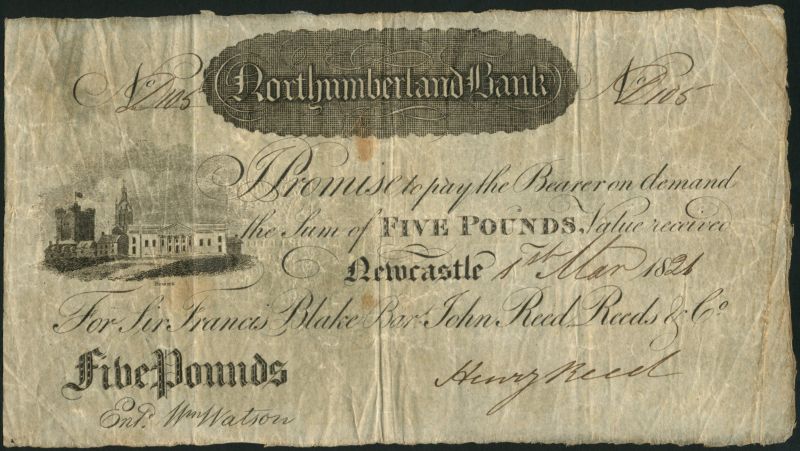 Northumberland Bank
No D105 No D105
I Promise to pay the Bearer on demand
the Sum of FIVE POUNDS Value received
Newcastle 1st Mar 1821
For Sir Francis Blake Bart. John Reed, Reeds & Co.
Five Pounds
Henry Reed
Entd. Wm Watson